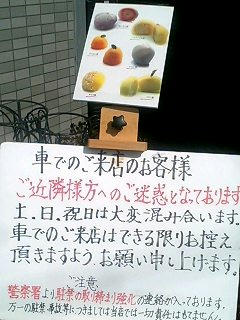 車でのご来店のお客様
ご近隣様方へのご迷惑となっております
土、日、祝日は大変混み合います。
車でのご来店はできる限りお控え
頂きますようお願い申し上げます。
ご注意
警察署より駐禁の取り締まり強化の連絡が入っております。
万一の駐禁、事故等につきましては当店では一切責任はもてません。